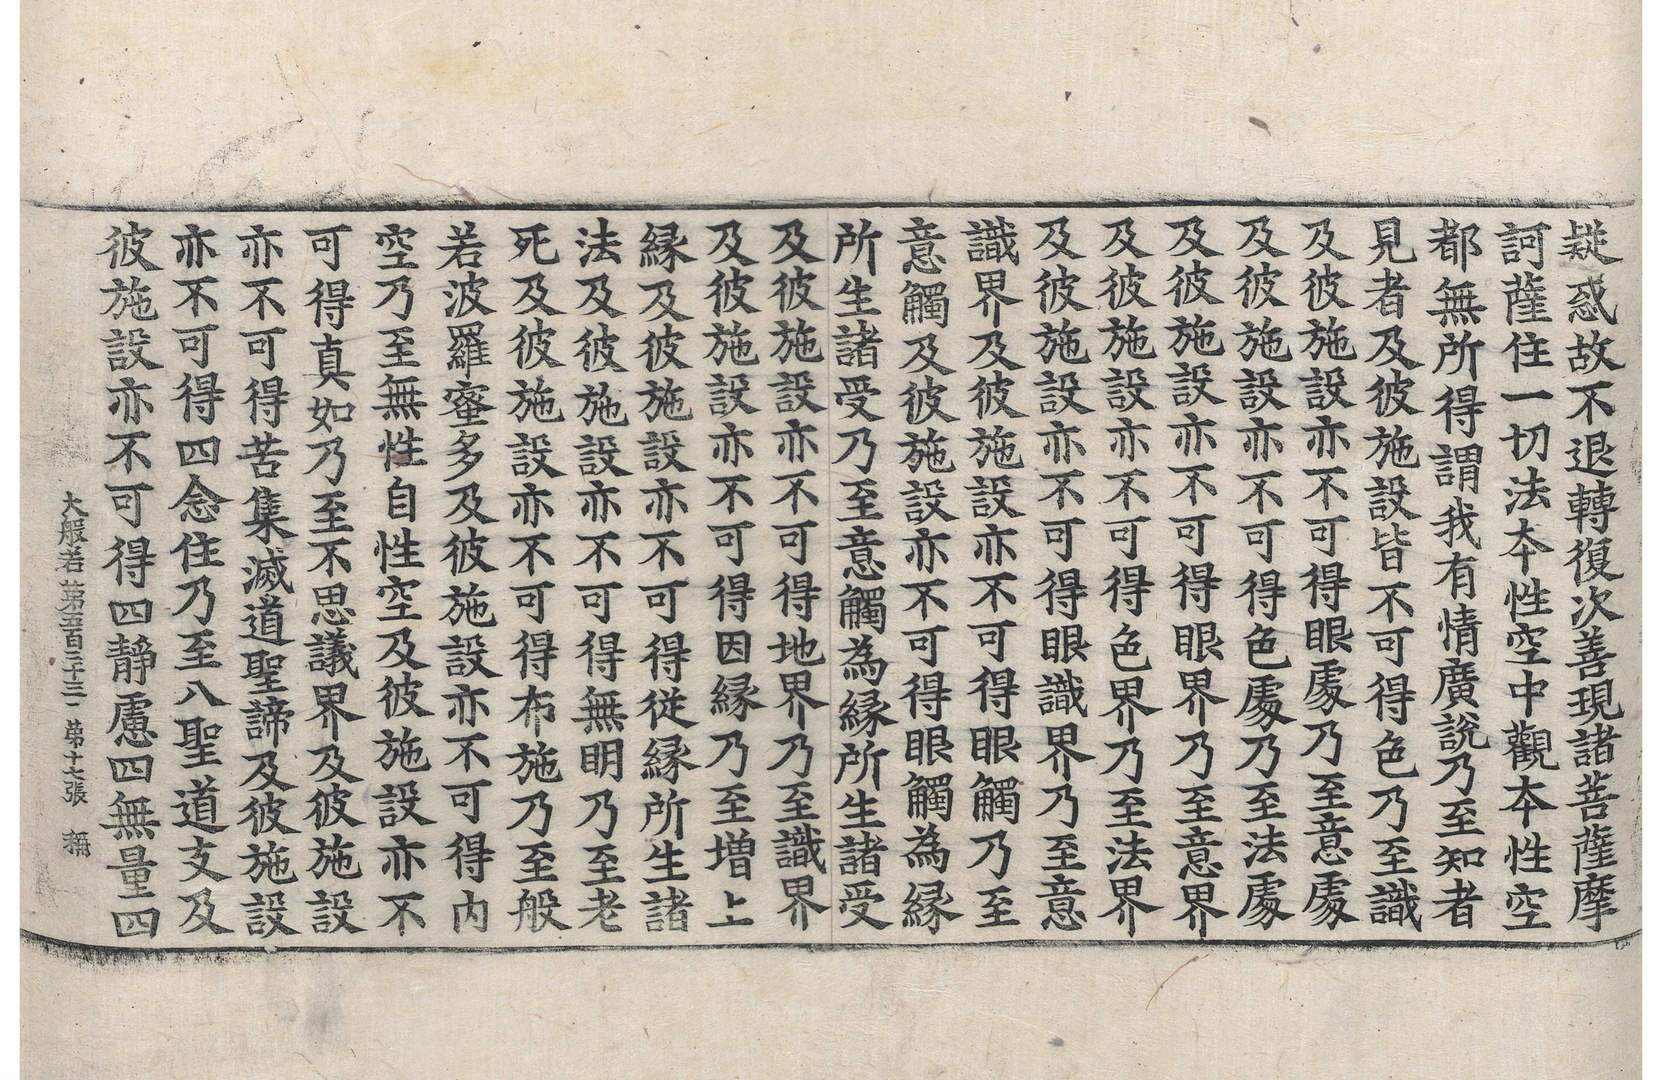 疑惑故不退轉復次善現諸菩薩摩
訶薩住一切法夲性空中觀夲性空
都無所得謂我有情廣說乃至知者
見者及彼施設皆不可得色乃至識
及彼施設亦不可得眼處乃至意處
及彼施設亦不可得色處乃至法處
及彼施設亦不可得眼界乃至意界
及彼施設亦不可得色界乃至法界
及彼施設亦不可得眼識界乃至意
識界及彼施設亦不可得眼觸乃至
意觸及彼施設亦不可得眼觸為縁
所生諸受乃至意觸為縁所生諸受
及彼施設亦不可得地界乃至識界
及彼施設亦不可得因縁乃至增上
縁及彼施設亦不可得從縁所生諸
法及彼施設亦不可得無明乃至老
死及彼施設亦不可得布施乃至般
若波羅蜜多及彼施設亦不可得内
空乃至無性自性空及彼施設亦不
可得真如乃至不思議界及彼施設
亦不可得苦集滅道聖諦及彼施設
亦不可得四念住乃至八聖道支及
彼施設亦不可得四靜慮四無量四
大般若第五百三十三 第十七張 稱